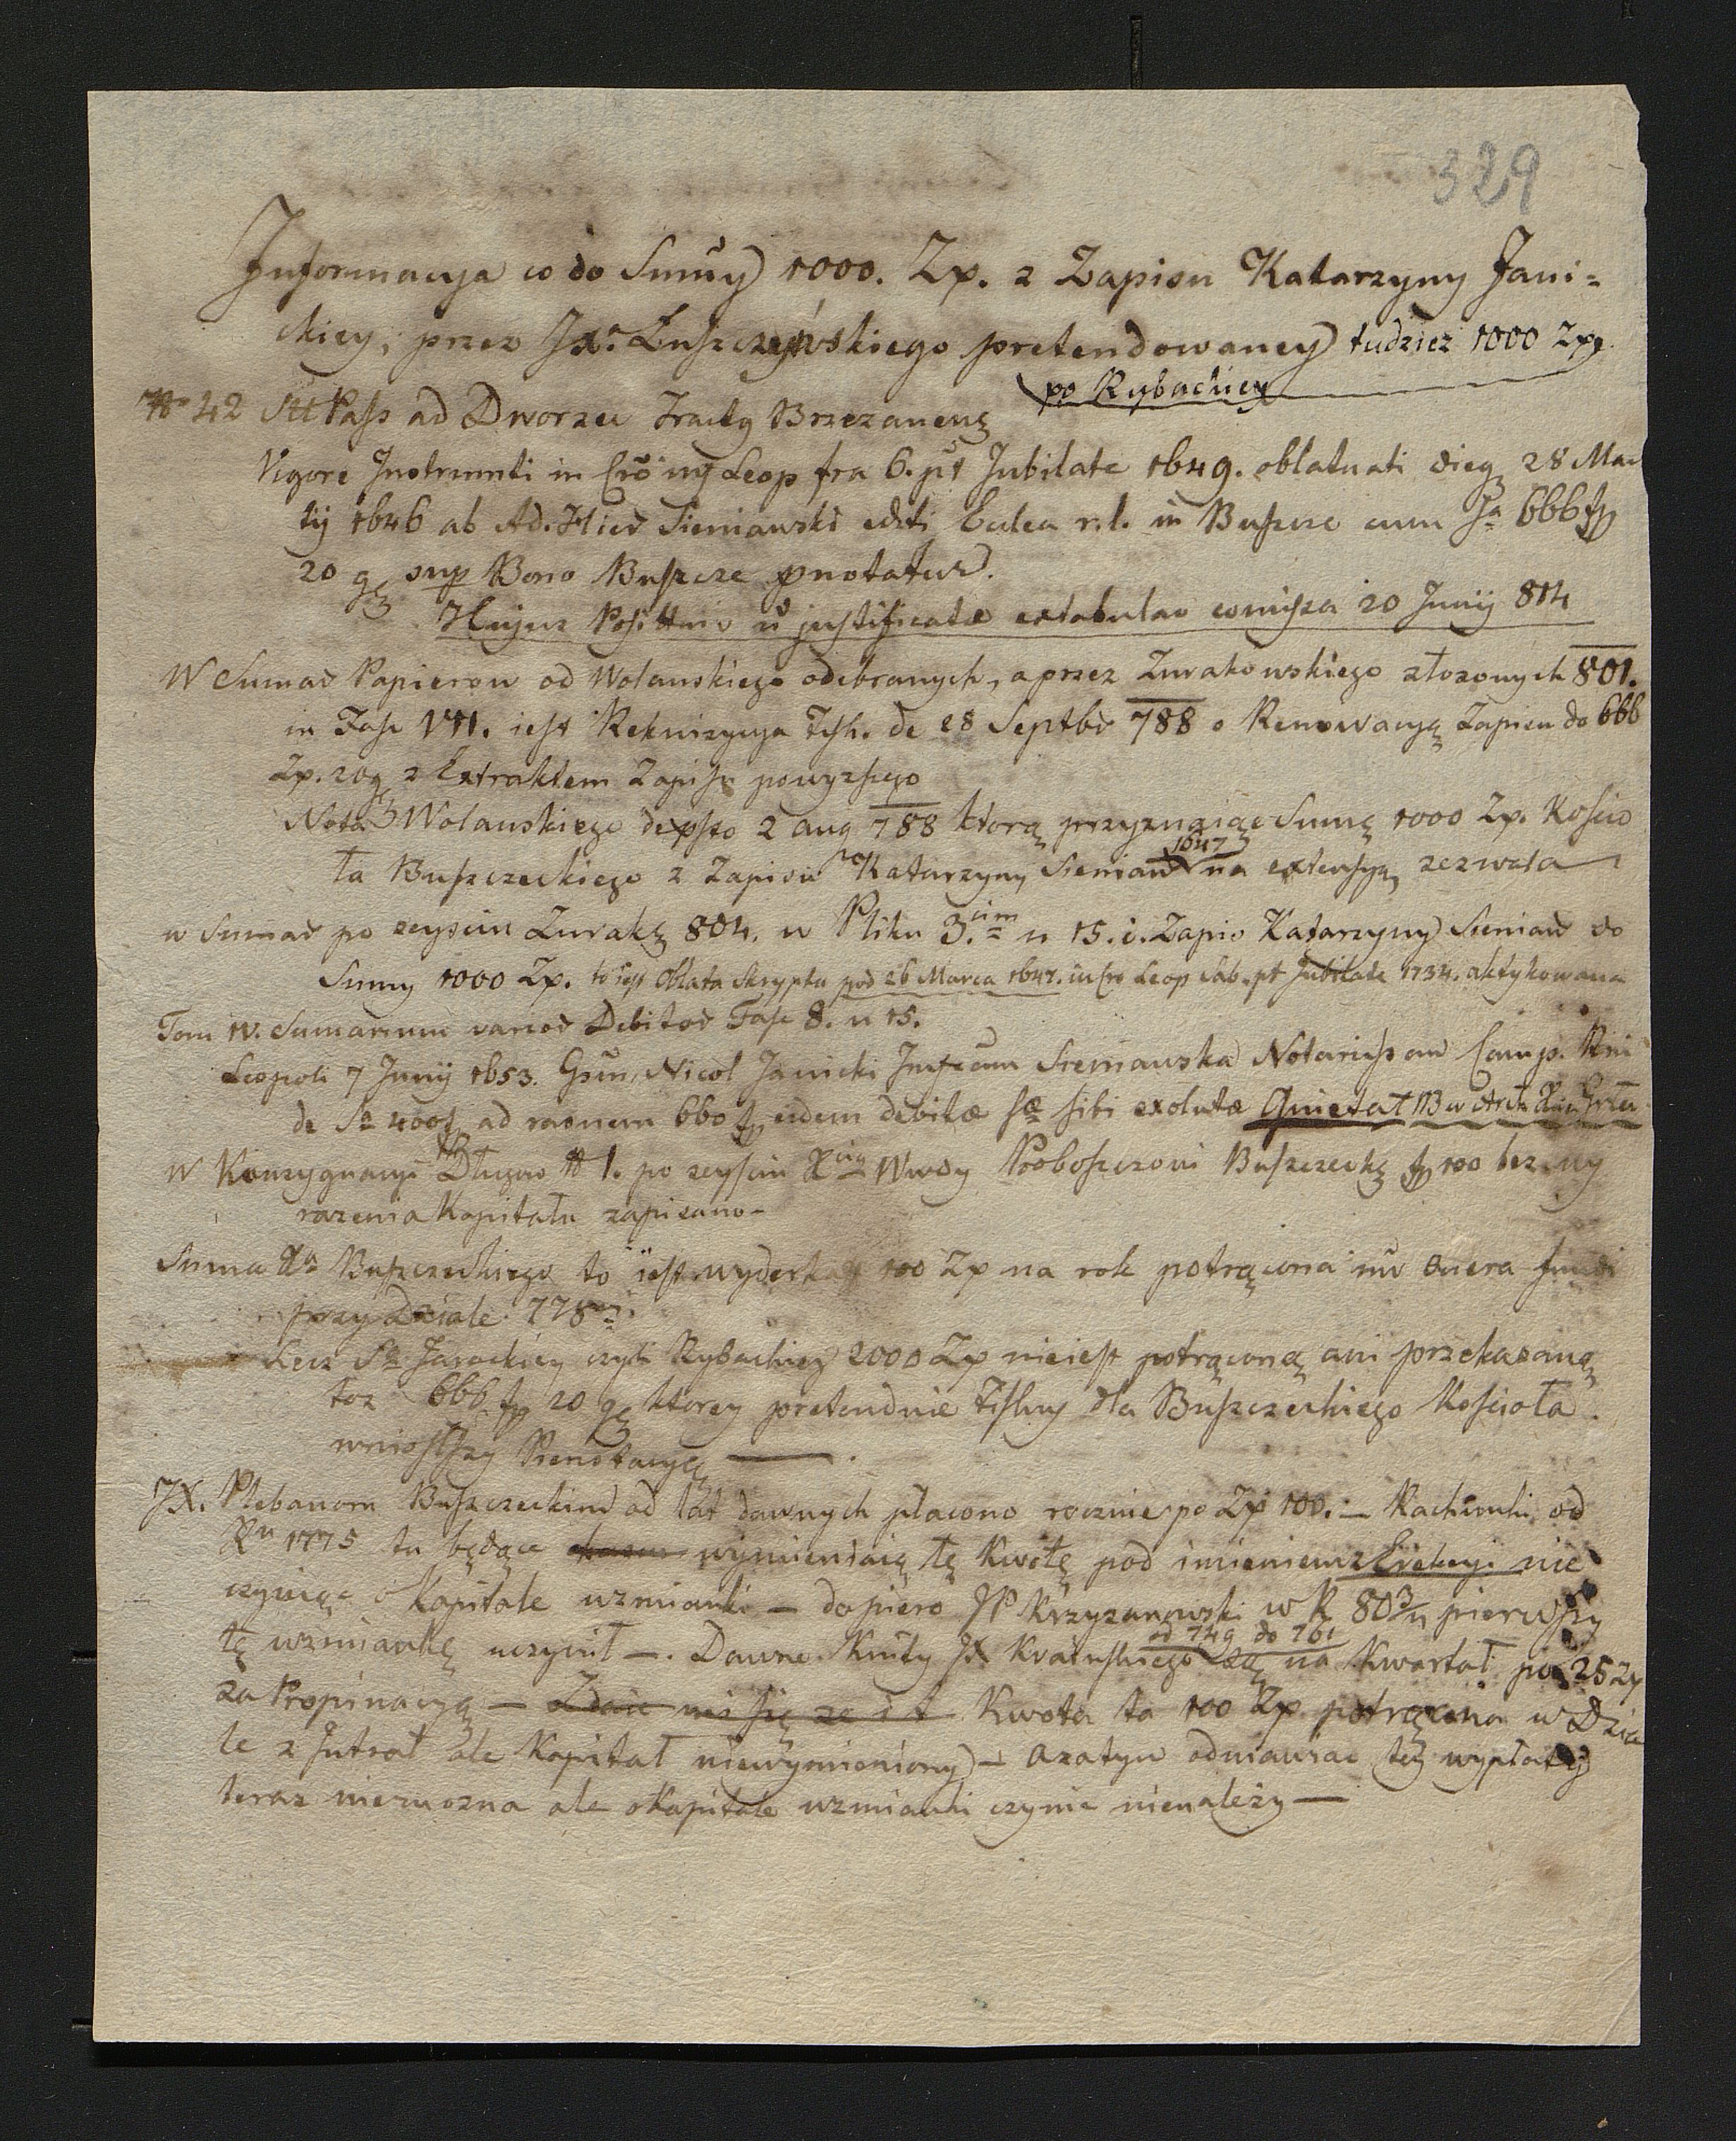 329
Informacya co do Sum̄y 1000. Zp. z Zapisu Katarzyny Jani=
ckiey, przez Jx. Łuszczyńskiego pretendowaney tudzież 1000 Zpg
po Rybackiey
N 42 Stt Pass ad Dworzec Tractg Brzezanens
Vigore Instrumti in Leop fra 6. pt Jubilate 1649. oblatuati die 28 Mar
tij 1646 ab Ad. Hier Sieniawski Ecclea r. l. in Buszcze cum Sa 666 fp
20 g sup Bono Buszcze pnotatur.
Hujus Posittnio justificatae extabulao comissa 20 Junij 814
W Sumar Papierow od Wolanskiego odebranych, a przez Zurakowskiego złozonych 801.
in Fasc VII. iest Rekwizycya Fish. de 28 Septbr 788 o Renowacyą Zapisu do 666
Zp. 20 g z Extraktem Zapisu powyzszego
Nota Wolanskiego de psto 2 aug 788 ktorą przyznaiąc Sumę 1000 Zp. Koscio
ła Buszczeckiego z Zapisu Katarzyny Sieniaw 1647 na extensyą zezwala
w Sumar po zeysciu Zurakg 804. w Pliku 3.cim n 15. i. Zapis Katarzyny Sieniaw do
Sumy 1000 Zp. to iest Oblata Skryptu pod 26 Marca 1647. in Cro Leop Sab. pt Jubilate 1734. aktykowana
Tom IV. Sumarium varior Debitor Fasc 8. n 15.
Leopoli 7 Junij 1653. Gsun, Nicol Janicki Sieniawska Notariss Camp. Rni
de Sa 400 f ad raonem 660 fp eidem debitae sae sibi exolutae Quietat NB w
W Konsygnacyi Długow N 1. po zeysciu Xcia Wwdy Proboszczowi Buszczeckg fp 100 bez wy
razenia Kapitału zapisano -
Suma Xa Buszczeckiego to iest wyderkaf 100 Zp na rok potrącona onera fundi
przy Dziale 778
Lecz Sa Jarockiey czyli Rybackiey 2000 Zp nieiest potrącona ani przekazaną
toz 666 fp 20 g ktorey pretenduie Fiskus dla Buszczeckiego Koscioła
wniosłszy Prenotacyę —
JX. Plebanom Buszczeckim od lat dawnych płacono rocznie po Zp 100. — Rachunki od
Ru 1775 tu będące wymieniaią tę Kwotę pod imieniem z Erekcyi nie
czyniąc o Kapitale wzmianki — dopiero JP Krzyzanowski w R 803/4 pierwszy
tę wzmiankę uczynił —. Dawne Kwity JX Kraińskiego od 749 do 761 są na Kwartał po 25 Zp
za Propinacyą — Zdaie mi się ze i t Kwota ta 100 Zp potrącona w Dzia
le z Intrat ale Kapitał niewymieniony — azatym odmawiac tey wypłaty
teraz niemozna ale o Kapitale wzmianki czynic nienależy —